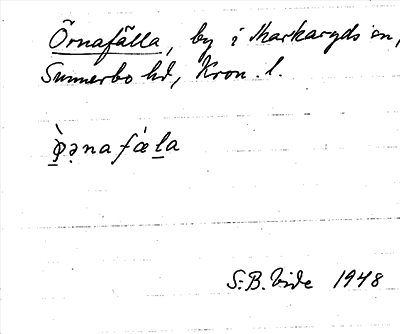 Örnafälla, by i Markaryds sn,
Sunnerbo hd, Kron. l.
ø̀ənafǽla
S.B. Vide 1948